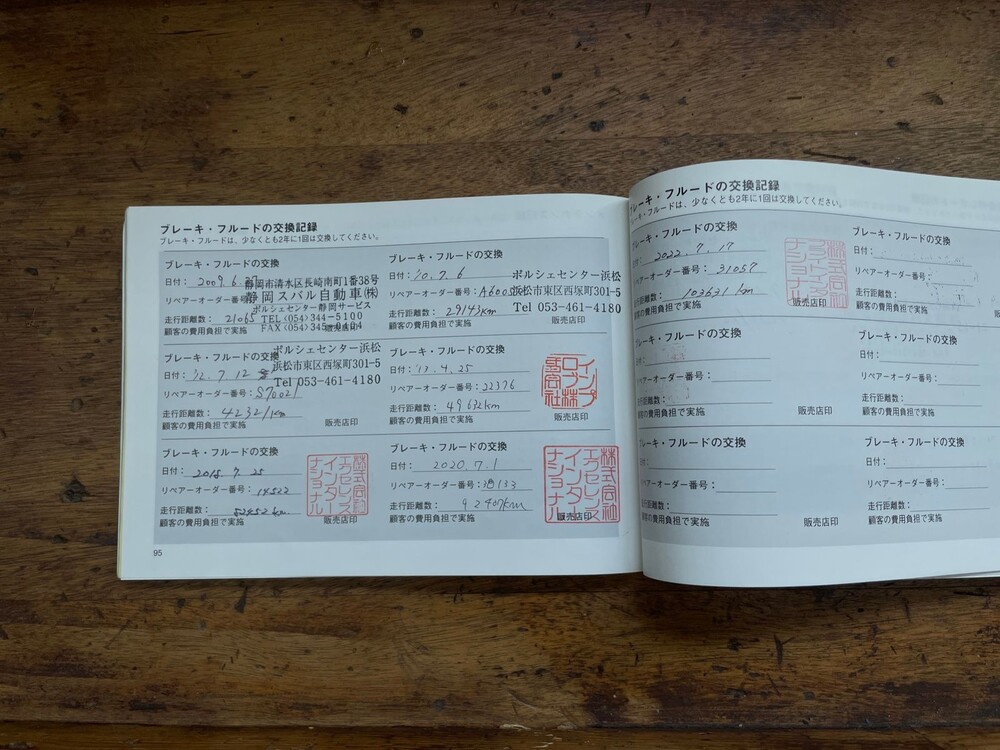 ブレーキ・フルードの交換記録
ブレーキ・フルードは、少なくとも2年に1回は交換してください。
ブレーキ・フルードの交換
日付: 2009.6.27
リペアーオーダー番号:
走行距離: 21065
顧客の費用負担で実施
販売店印
静岡市清水区長崎南町1番38号
静岡スバル自動車㈱
ポルシェセンター静岡サービス
TEL〈054〉344-5100
FAX〈054〉345-0404
ブレーキ・フルードの交換
日付: '10.7.6
リペアーオーダー番号: A6005
走行距離数: 29143km
顧客の費用負担で実施
販売店印
ポルシェセンター浜松
浜松市東区西塚町301-5
Tel 053-461-4180
ブレーキ・フルードの交換
日付: '12.7.12
リペアーオーダー番号: S70021
走行距離数: 42321km
顧客の費用負担で実施
販売店印
ポルシェセンター浜松
浜松市東区西塚町301-5
Tel 053-461-4180
ブレーキ・フルードの交換
日付: '13.4.25
リペアーオーダー番号: 22376
走行距離数: 49632km
顧客の費用負担で実施
販売店印
ブレーキ・フルードの交換
日付: 2015.7.25
リペアーオーダー番号: 14522
走行距離数: 52452km
顧客の費用負担で実施
販売店印
株式会社
エクセレンス
インター
ナショナル
ブレーキ・フルードの交換
日付: 2020.7.1
リペアーオーダー番号:
走行距離数: 92407km
顧客の費用負担で実施
販売店印
株式会社
エクセレンス
インター
ナショナル
95
ブレーキ・フルードの交換記録
ブレーキ・フルードは、少なくとも2年に1回は交換してください。
ブレーキ・フルードの交換
日付: 2022.7.17
リペアーオーダー番号: 31057
走行距離数: 103631km
顧客の費用負担で実施
販売店印
株式会社
ナショナル
ブレーキ・フルードの交換
日付:
リペアーオーダー番号:
走行距離数:
顧客の費用負担で実施
ブレーキ・フルードの交換
日付:
リペアーオーダー番号:
走行距離数:
顧客の費用負担で実施
販売店印
ブレーキ・フルードの交換
日付:
リペアーオーダー番号:
走行距離数:
顧客の費用負担で実施
ブレーキ・フルードの交換
日付:
リペアーオーダー番号:
走行距離数:
顧客の費用負担で実施
販売店印
ブレーキ・フルードの交換
日付:
リペアーオーダー番号:
走行距離数:
顧客の費用負担で実施